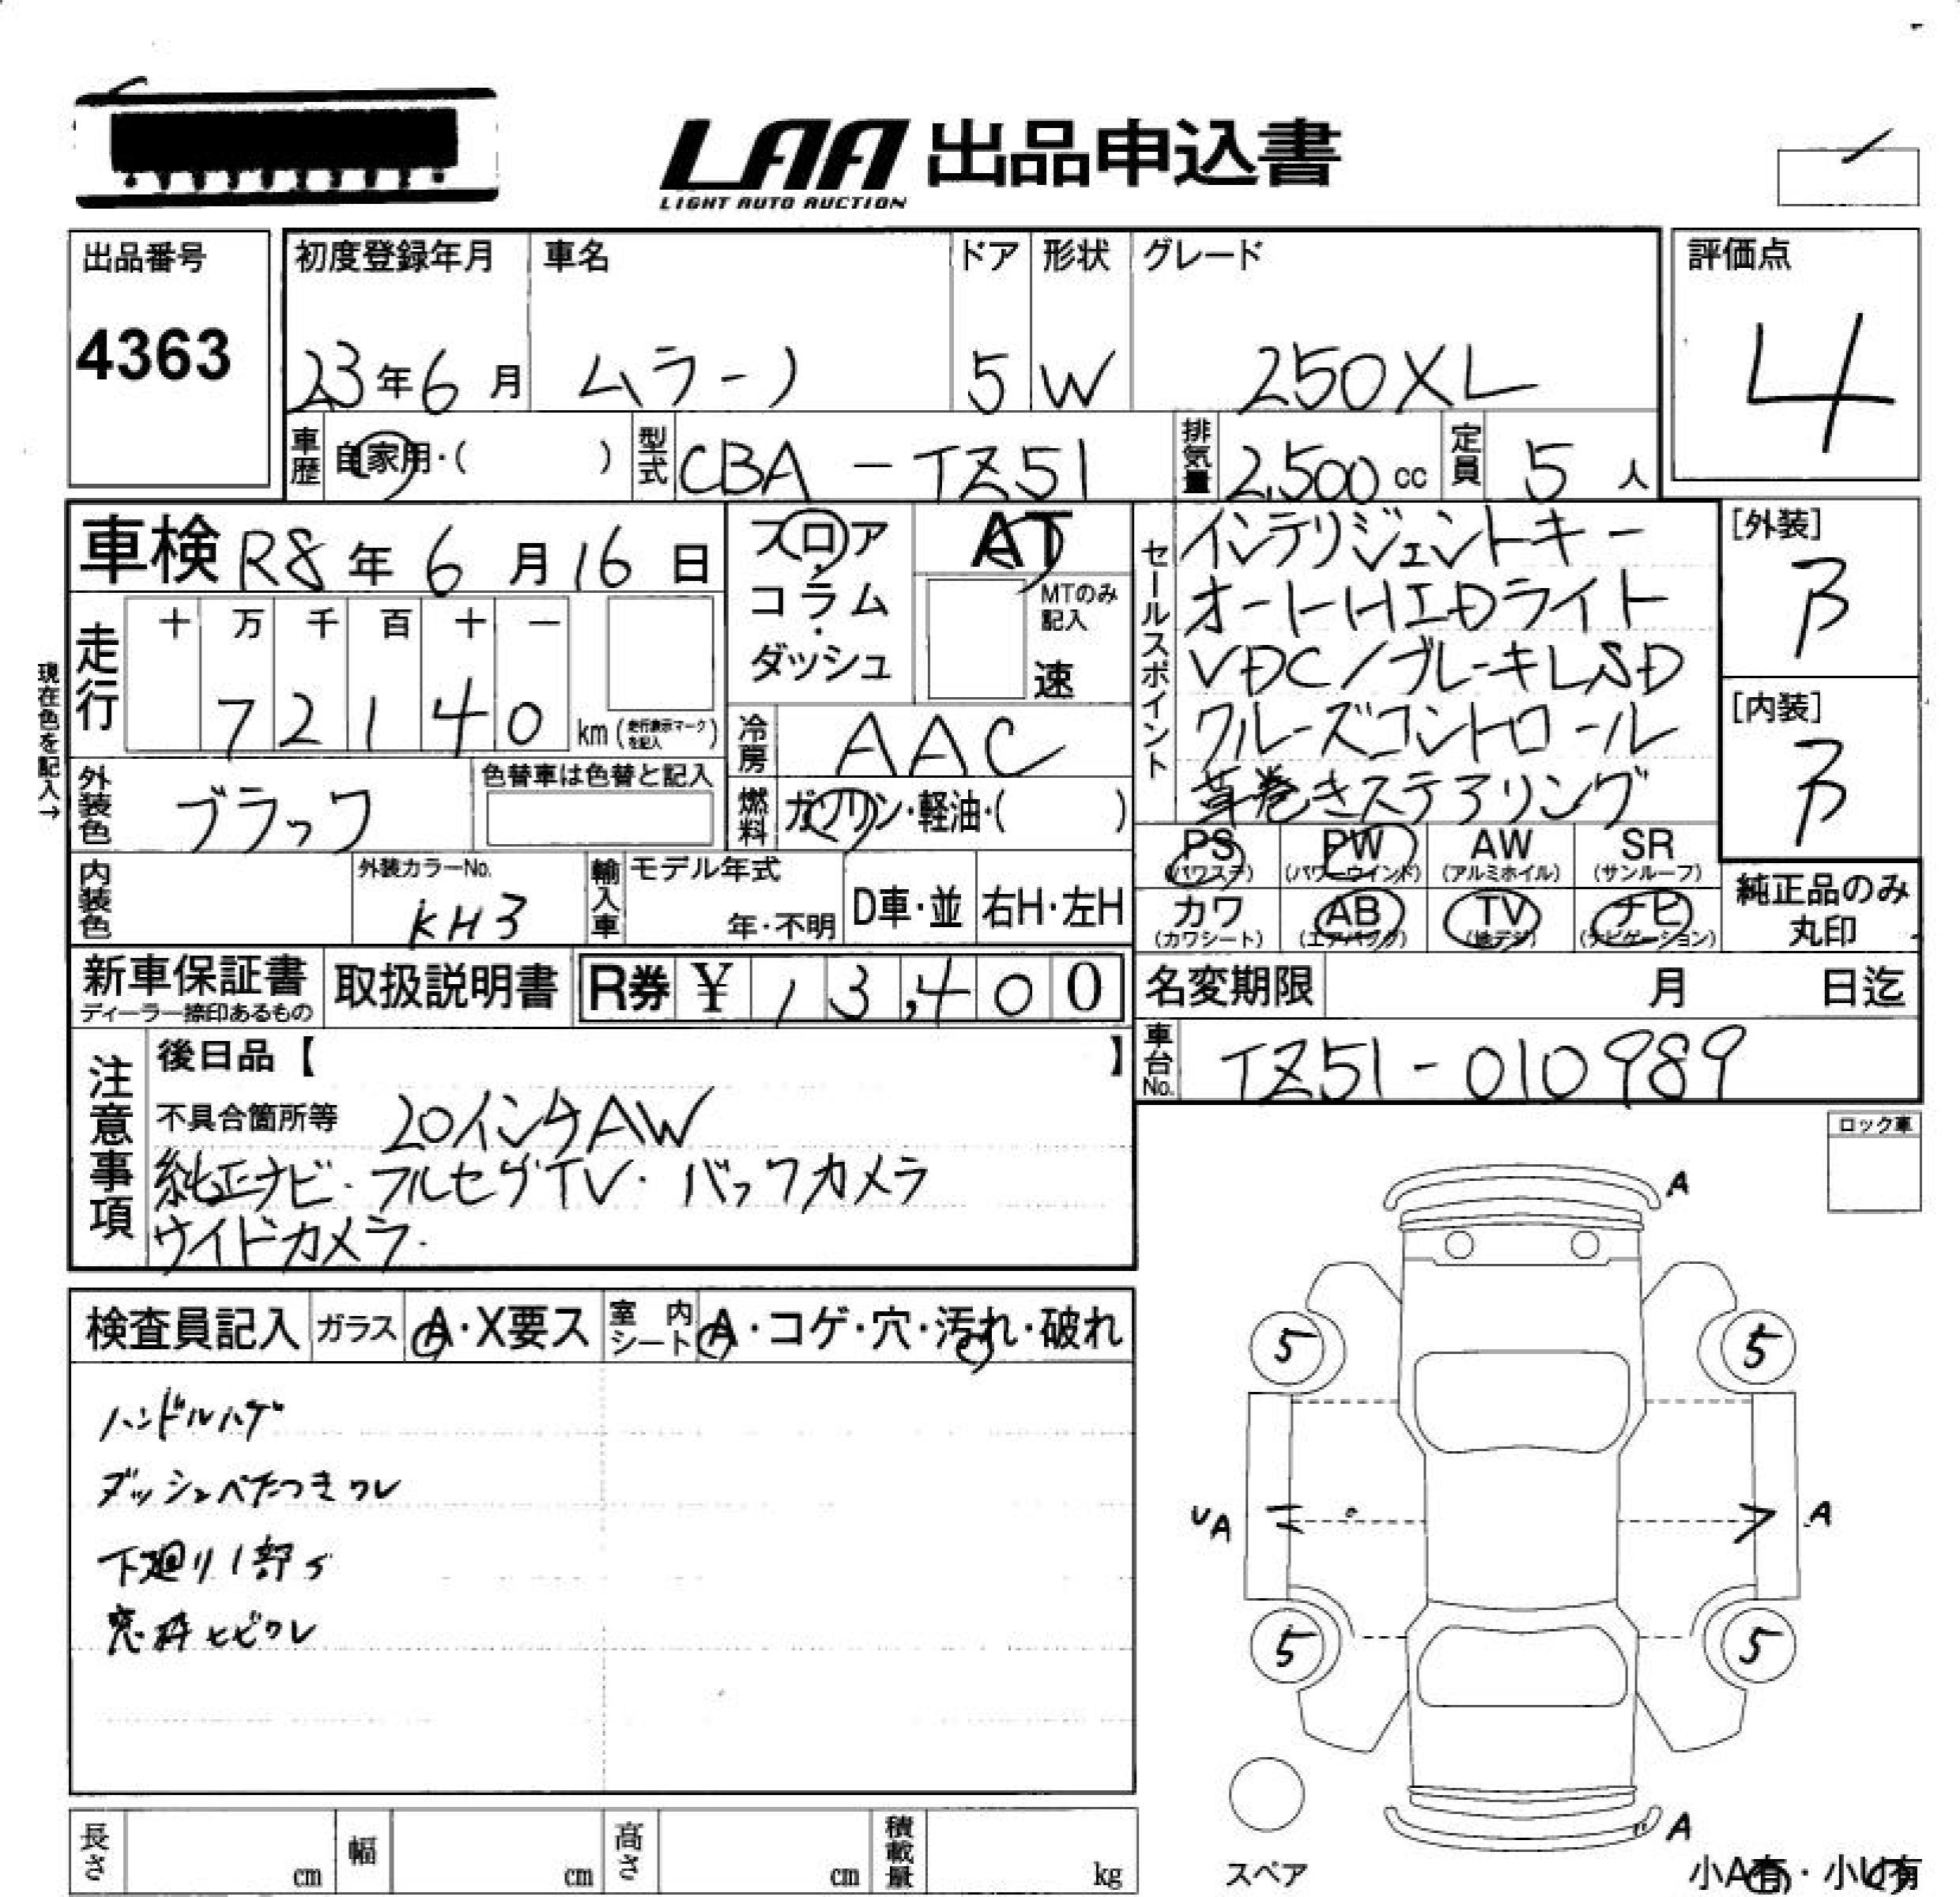 LAA 出品申込書
LIGHT AUTO AUCTION
出品番号
4363
初度登録年月
23年6月
車名
ムラーノ
ドア
5
形状
W
グレード
250XL
評価点
4
車歴 自家用・( )
型式 CBA-TZ51
排気量 2,500cc
定員 5人
車検 R8年6月16日
フロア・コラム・ダッシュ
AT
MTのみ記入
速
走行
十 万 千 百 十 一
7 2 1 4 0 km(走行表示マークを記入)
現在色を記入→
外装色 ブラック
色替車は色替と記入
冷房 AAC
燃料 ガソリン・軽油・( )
内装色
外装カラーNo.
KH3
輸入車
モデル年式
年・不明
D車・並
右H・左H
セールスポイント
インテリジェントキー
オートHIDライト
VDC/ブレーキLSD
クルーズコントロール
革巻きステアリング
[外装]
B
[内装]
B
PS (パワステ)
PW (パワーウインド)
AW (アルミホイル)
SR (サンルーフ)
カワ (カワシート)
AB (エアバッグ)
TV (地デジ)
ナビ (ナビゲーション)
純正品のみ
丸印
新車保証書
ディーラー捺印あるもの
取扱説明書
R券 ¥ 13,400
名変期限 月 日迄
車台No. TZ51-010989
注意事項
後日品【 】
不具合箇所等 20インチAW
純正ナビ・フルセグTV・バックカメラ
サイドカメラ
ロック車
検査員記入 ガラス A・X要ス
室内シート A・コゲ・穴・汚れ・破れ
ハンドルハゲ
ダッシュベたつきワレ
下廻り1部S
窓枠ヒビワレ
A
5 5
UA A
5 5
A
スペア
小A有・小U有
長さ cm
幅 cm
高さ cm
積載量 kg